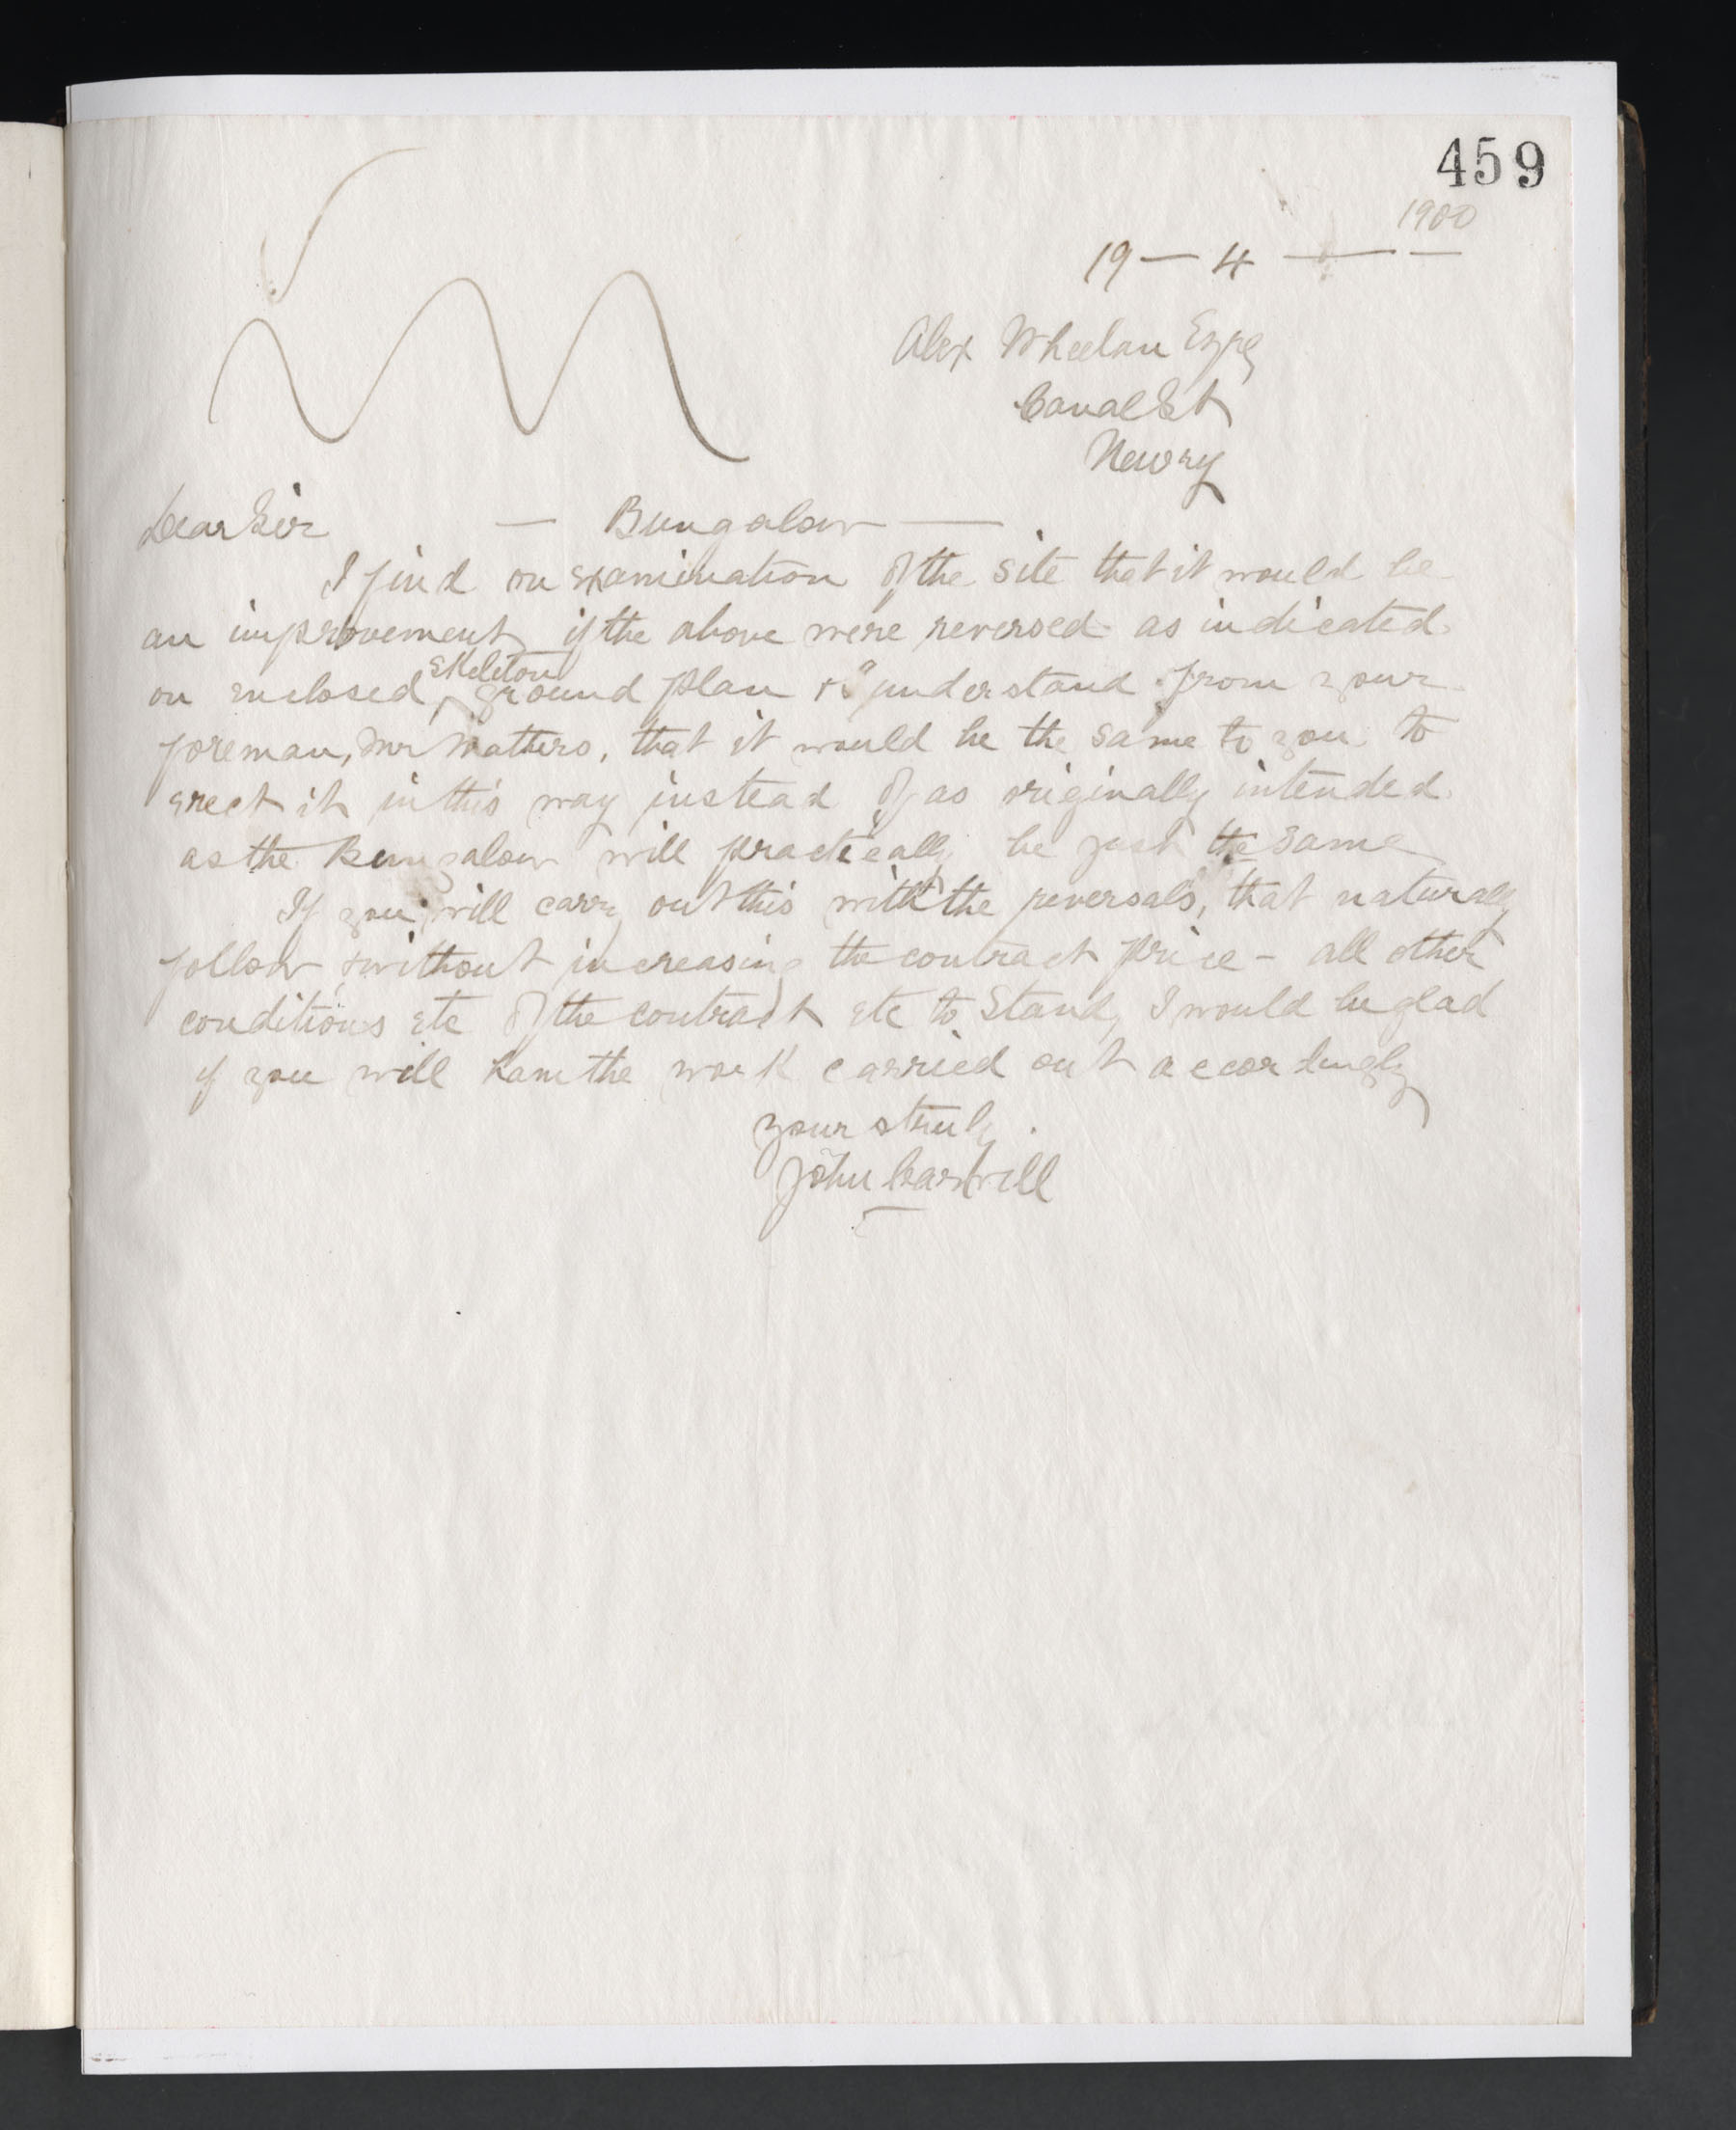 459
1900
19 — 4 — —
Alex Wheelan Esqre
Canal St
Newry
Dear Sir — Bungalow —
I find on examination of the site that it would be
an improvement if the above were reversed as indicated
on enclosed skeleton ground plan & I understand from your
foreman, Mr Watters, that it would be the same to you to
erect it in this way instead of as originally intended
as the Bungalow will practically be just the same
If you will carry out this with the reversals, that naturally
follow, without increasing the contract price - all other
conditions etc of the contract etc to stand, I would be glad
if you will have the work carried out accordingly
yours truly
John Caswell